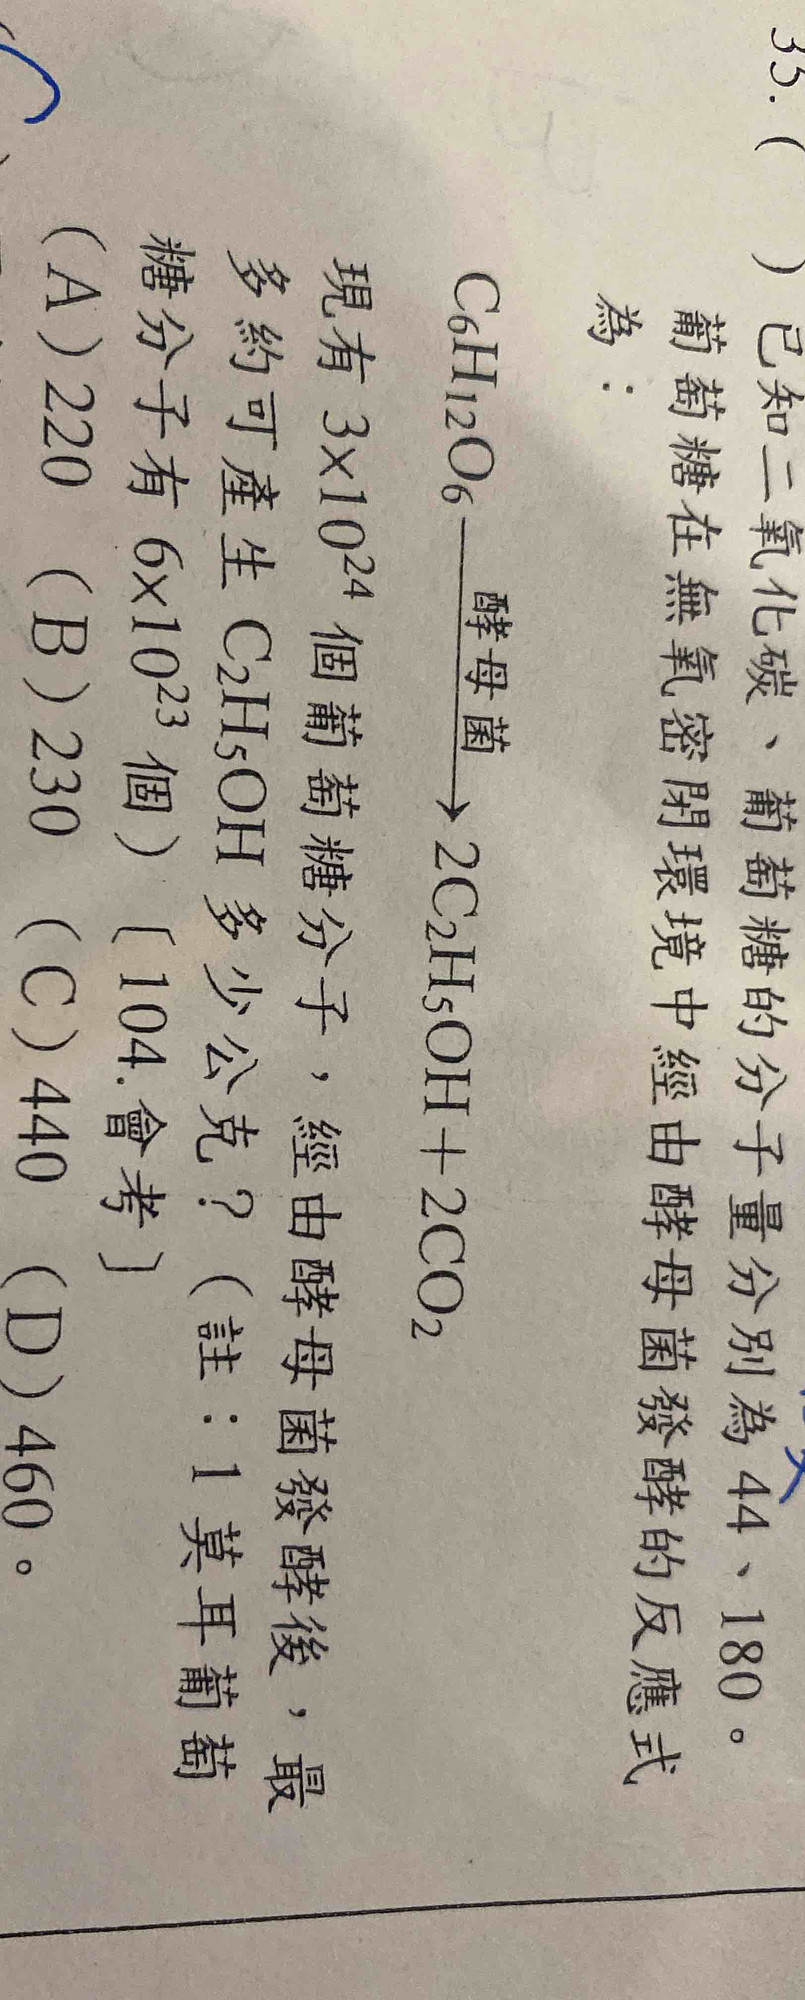 35.(　　)已知二氧化碳、葡萄糖的分子量分別為 44、180。
葡萄糖在無氧密閉環境中經由酵母菌發酵的反應式
為：
酵母菌
C₆H₁₂O₆ ⟶ 2C₂H₅OH＋2CO₂
現有 3×10²⁴ 個葡萄糖分子，經由酵母菌發酵後，最
多約可產生 C₂H₅OH 多少公克？（註：1 莫耳葡萄
糖分子有 6×10²³ 個）〔104.會考〕
(A)220　(B)230　(C)440　(D)460。